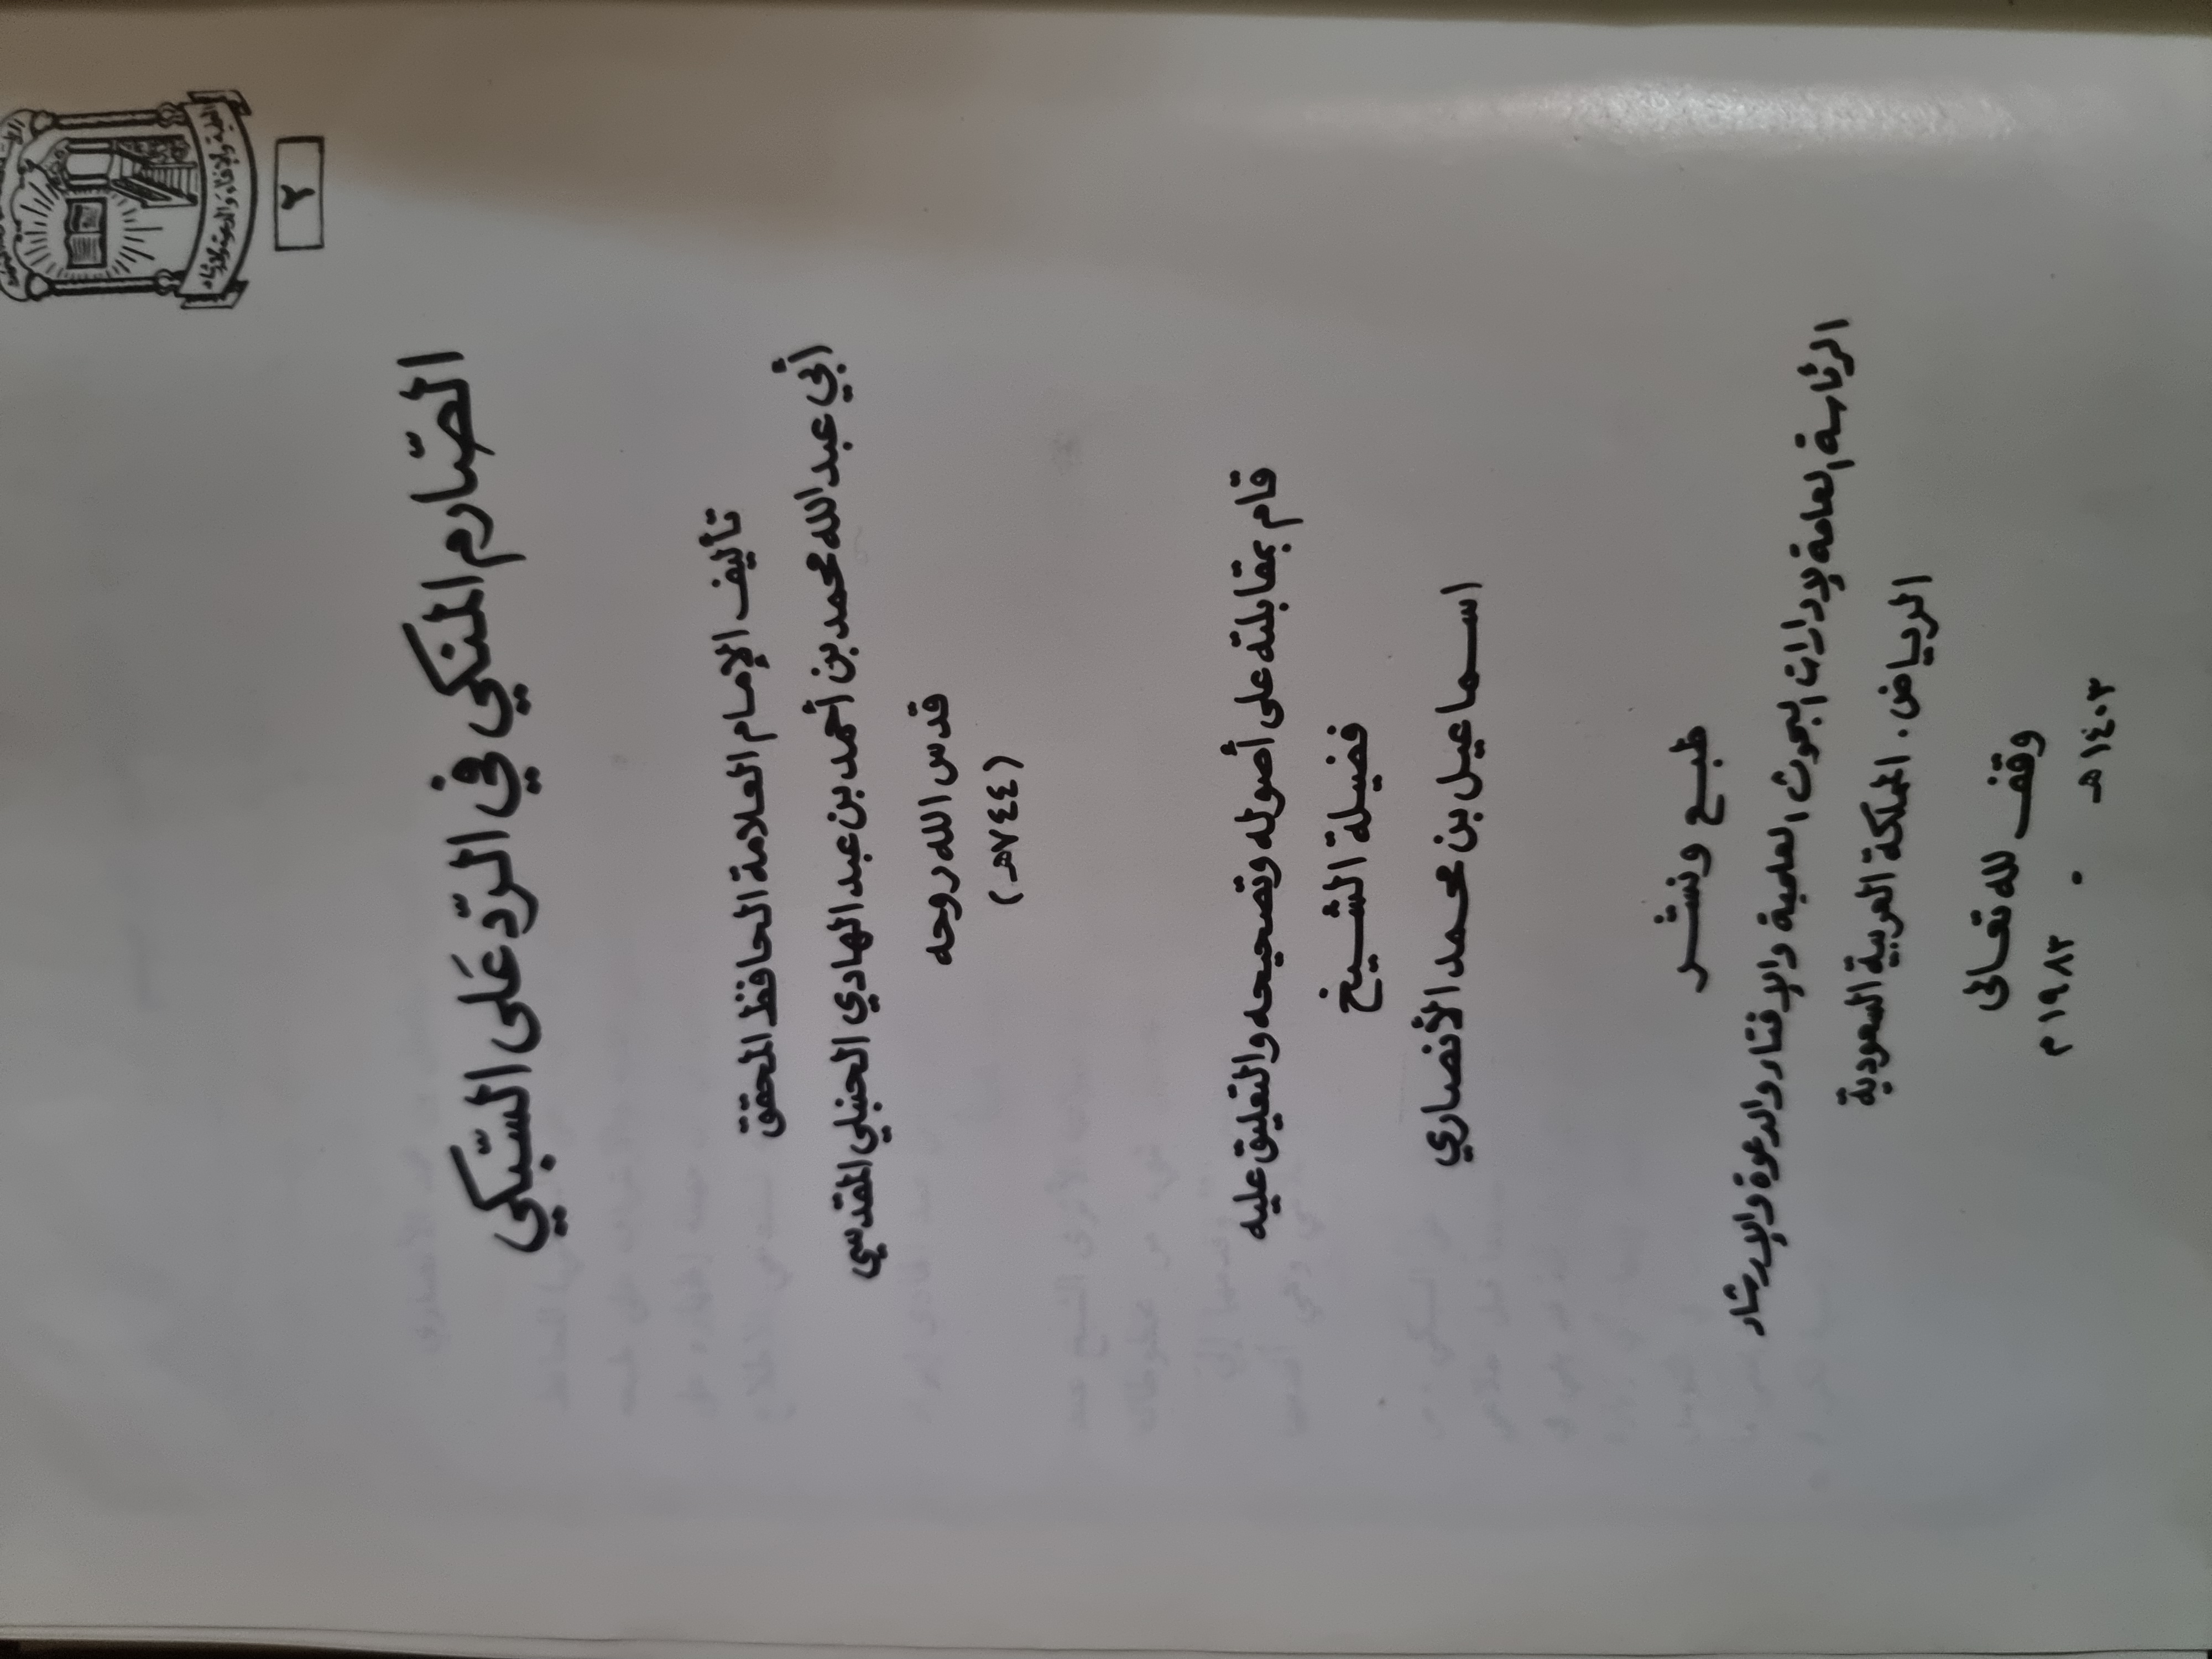 ٢
الصّارم المنكي في الردّ عَلى السّبكي
تأليف الإمام العلامة الحافظ المحقق
أبي عبد الله محمد بن أحمد بن عبد الهادي الحنبلي المقدسي
قدس الله روحه
(٧٤٤هـ)
قام بمقابلته على أصوله وتصحيحه والتعليق عليه
فضيلة الشيخ
اسماعيل بن محمد الأنصاري
طبع ونشر
الرئاسة العامة لإدارات البحوث العلمية والإفتاء والدعوة والإرشاد
الرياض. المملكة العربية السعودية
وقف لله تعالى
١٤٠٣هـ • ١٩٨٣م